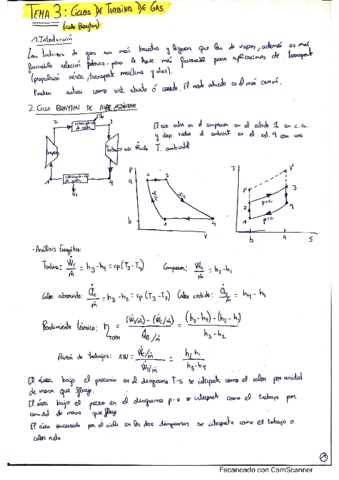 TEMA 3: CICLOS DE TURBINA DE GAS
(ciclo Brayton)
1. Introducción
Las turbinas de gas son más baratas y ligeras que las de vapor, además es más
favorable relación potencia-peso lo hace más favorable para aplicaciones de transporte
(propulsión aérea, transporte marítimo y otros).
Pueden actuar como sist. abierto ó cerrado. El modo abierto es el más común.
2. CICLO BRAYTON DE AIRE ESTÁNDAR
El aire entra en el compresor en el estado 1 en c.a.
y después vuelve al ambiente en el est. 4 con una
T. ambiente
Compresor
Turbina
P
a
b
2
3
1
4
V
T
2
3
1
4
p=c
p=c
b
a
S
- Análisis Energético:
Turbina: Ẇt/ṁ = h3 - h4 = cp(T3 - T4) Compresor: Ẇc/ṁ = h2 - h1
Calor absorbido: Q̇a/ṁ = h3 - h2 = cp(T3 - T2) Calor cedido: Q̇/ṁ = h4 - h1
Rendimiento térmico: η TERM = (Ẇt/ṁ) - (Ẇc/ṁ) / Q̇a/ṁ = (h3 - h4) - (h2 - h1) / h3 - h2
Relación de trabajos: = Ẇc/ṁ / Ẇt/ṁ = h2 - h1 / h3 - h4
El área bajo el proceso en el diagrama T-s se interpreta como el calor por unidad
de masa que fluye.
El área bajo el proceso en el diagrama p-v se interpreta como el trabajo por
unidad de masa que fluye
El área encerrada por el ciclo en los dos diagramas se interpreta como el trabajo o
calor neto
3
Escaneado con CamScanner